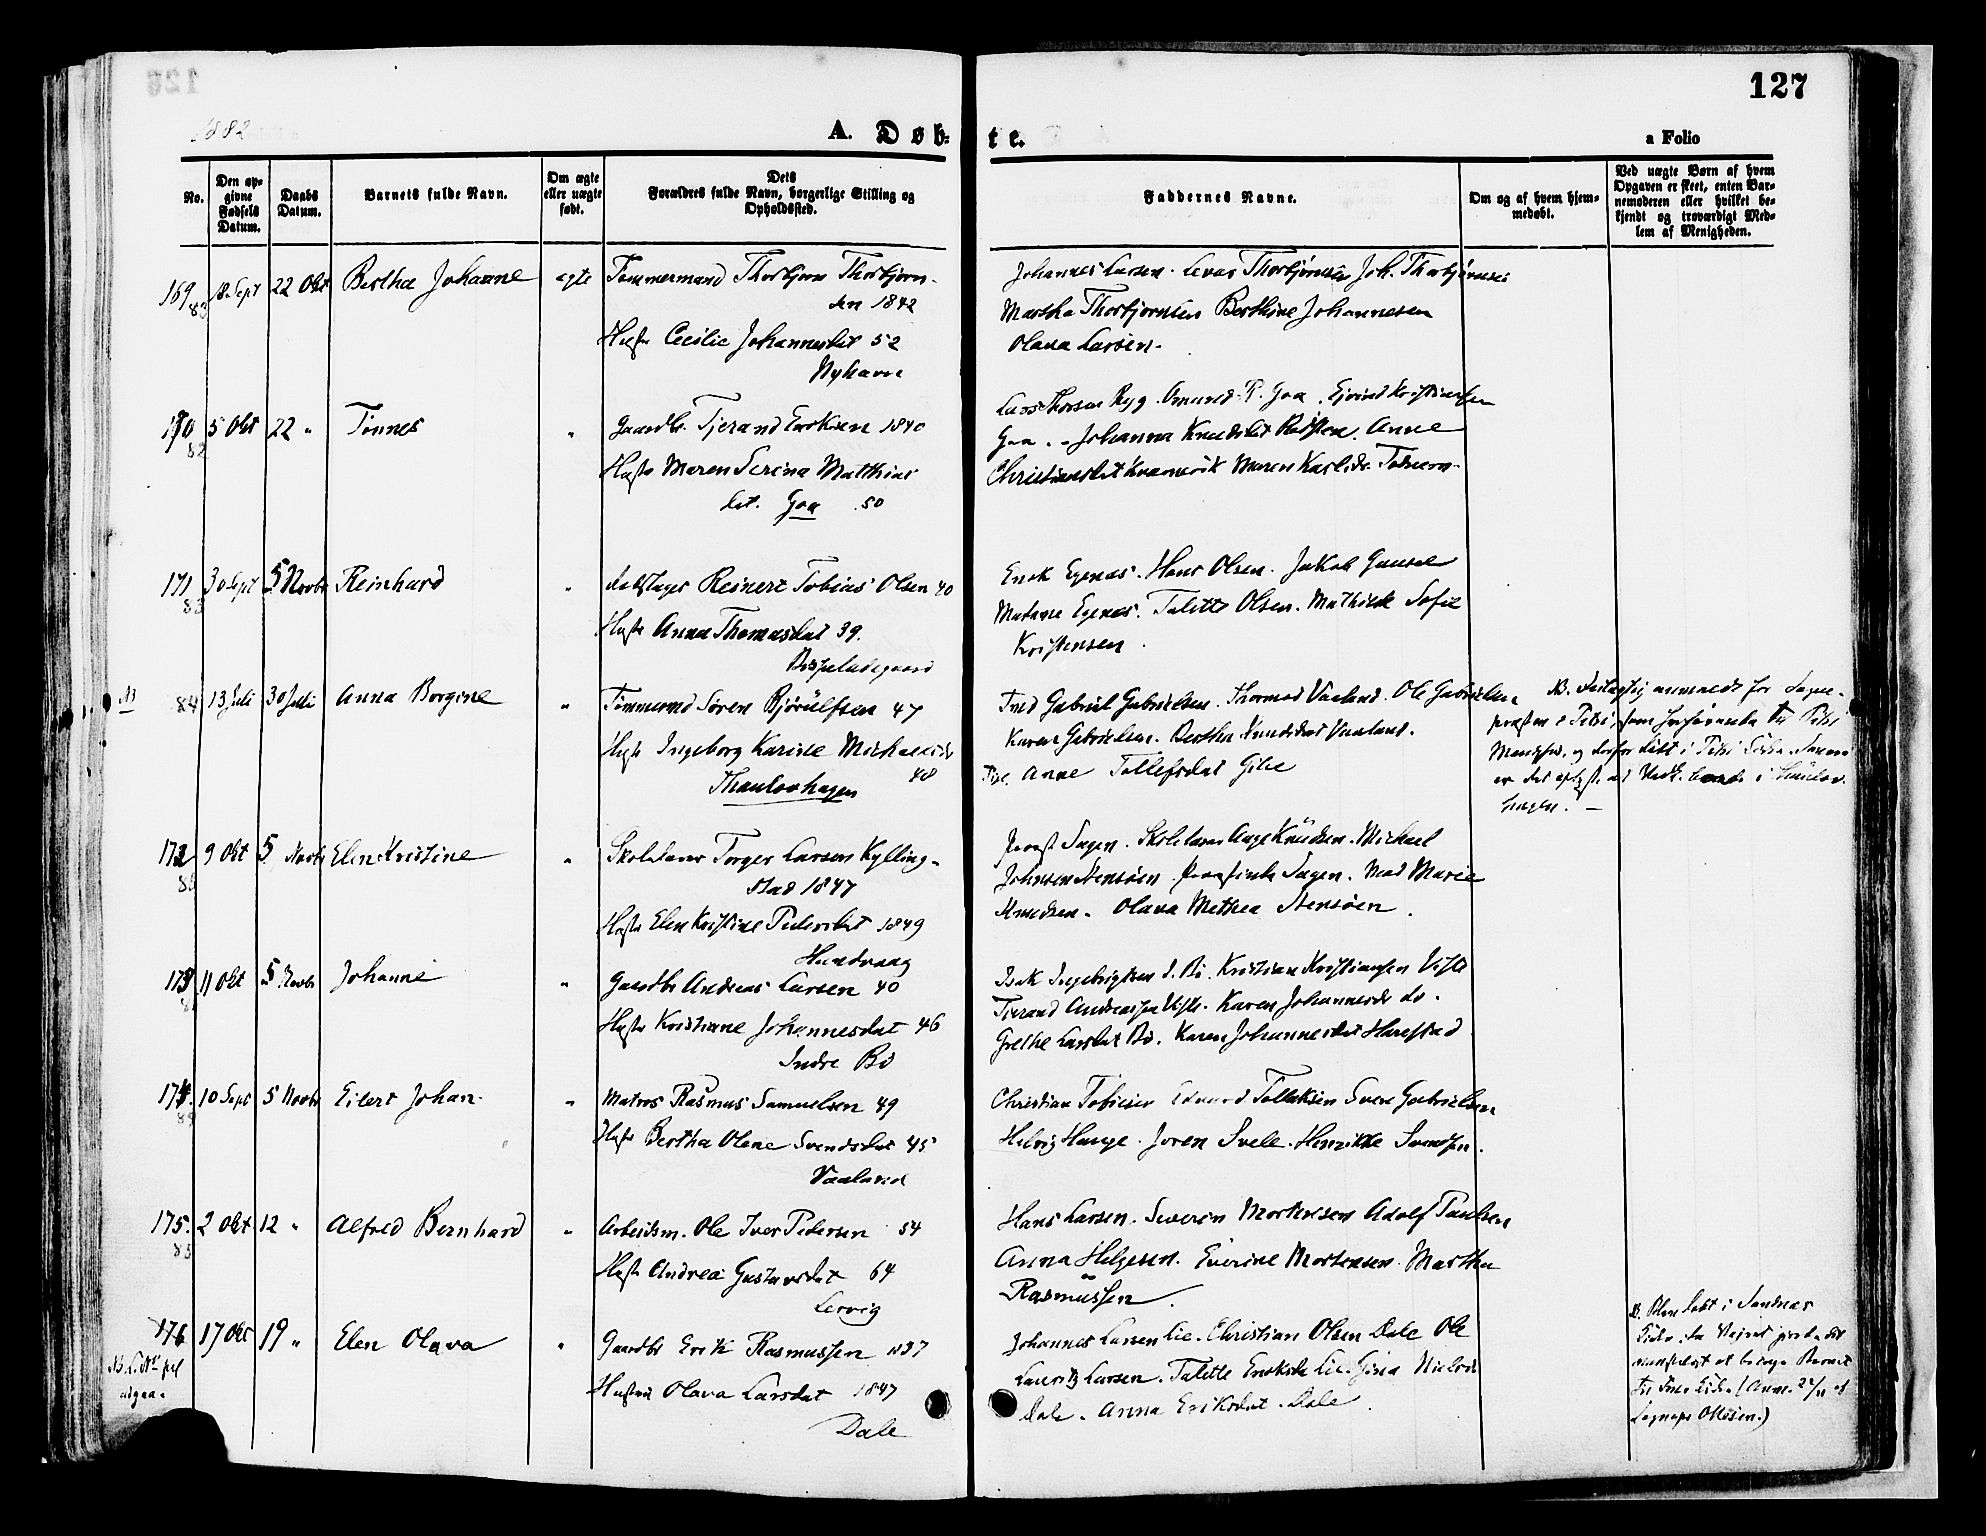 127
1882
A. Døb-
te.
a Folio
No.
Den op-
givne
Fødsels
Datum.
Daabs
Datum.
Barnets fulde Navn.
Om ægte
eller uægte
født.
Dets
Forældres fulde Navn, borgerlige Stilling og
Opholdssted.
Faddernes Navne.
Om og af hvem hjem-
medøbt.
Ved uægte Børn af hvem
Opgaven er skeet, enten Bar-
nemoderen eller hvilket be-
kjendt og troværdigt Med-
lem af Menigheden.
169 18 Sept 22 Okt Bertha Johanne ægte Tømmermand Thorbjørn Thorbjørn-
sen 1842
Hustr Cecilie Johannesdat 52
Nyhavn
Johannes Larsen. Thorbjørnsen Joh. Thorbjørnsen
Martha Thorbjørnsen Berthine Johannesen
Olava Larsen.
170 5 Okt 22 " Tønnes " Gaardbr. Tjerand Eriksen 1840
82
Hustr Maren Serina Matthias
dat. Goa 50
Lars Thorsen Ryg. Omund R. Goa. Ejvind Kristiansen
Goa. Johanna Knudsdat Anne
Christiansdat Maren
171 30 Sept 5 Novbr Reinhard " Reinert Tobias Olsen 40
83
Hustr Anna Thomasdat 39.
Bispeladegaard
Enok Egenes. Hans Olsen. Jakob Gausel
Madame Egenes. Talette Olsen. Mathilde Sofie
Kristensen
NB
84 13 Juli 30 Juli Anna Borgine " Tømmermd Søren Bjørulfsen 47
Hustr Ingeborg Karine Michaelsdr
48
Thaulowhagen
Gabriel Gabrielsen. Thormod Vaaland. Ole Gabrielsen
Karen Gabrielsen. Bertha Knudsdat Vaaland.
Anne Tollefsdat Gilje
NB. for Sogne-
præsten i Petri, som henhørende til Petri
Menighed. og derfor døbt i Petri Kirke. Senere
er det oplyst, at i Thaulow-
hagen. —
172 9 Okt 5 Novbr Elen Kristine " Skolelærer Torger Larsen Kylling-
stad 1847
Hustr Elen Kristine Pedersdat 1849
Hundvaag
Provst Sagen. Skolelærer Aage Knudsen. Michael
Johnsen Stensøen. Provstinde Sagen. Mad Marie
Knudsen. Olava Mathea Stensøen.
173 11 Okt 5 Novbr Johanne " Gaardbr Andreas Larsen 40
Hustr Kristiane Johannesdat 46
Indre Bø
Isak Ingebrigtsen I. Bø. Kristian Kristiansen Viste
Tjerand Andreassen Viste. Karen Johannesdr do.
Grethe Larsdat Bø. Karen Johannesdat Harestad
174. 10 Sept 5 Novbr Eilert Johan " Matros Rasmus Samuelsen 49
Hustr Bertha Olene Svendsdat 45
Vaaland
Christian Tobiesen Edvard Tollaksen Sven Gabrielsen
Helvig Hauge. Joren Svele. Henrikke Svendsen.
175. 2 Okt 12 " Alfred Bernhard " Arbeidsm. Ole Iver Pedersen 54
83
Hustr Andrea Gustavsdat 64
Lervig
Hans Larsen. Severin Mortensen Adolf Paulsen
Anna Helgesen. Everine Mortensen. Martha
Rasmussen.
176 17 Okt 19 " Elen Olava " Gaardbr Erik Rasmussen 1837
Hustru Olava Larsdat 1847
Dale
Johannes Larsen Lie. Christian Olsen Dale Ole
Lauritz Larsen. Talette Eriksdr Lie. Gina Nielsdr
Dale. Anna Eriksdat. Dale.
NB. døbt i Sandnæs
Kirke, da Veiret gjorde det
at bringe Barnet
til Kirke. (Anm. 22/11 af
Ottesen.)